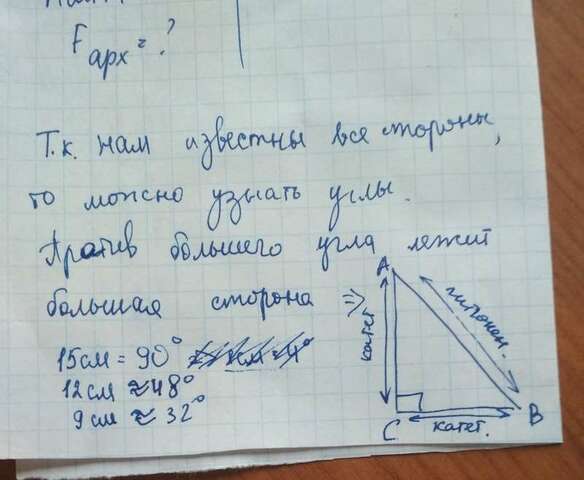 Fарх = ?
Т.к. нам известны все стороны,
то можно узнать углы.
Против большего угла лежит
большая сторона =>
15 см = 90°
12 см ≈ 48°
9 см ≈ 32°
A
катет
гипотен.
C
катет.
B